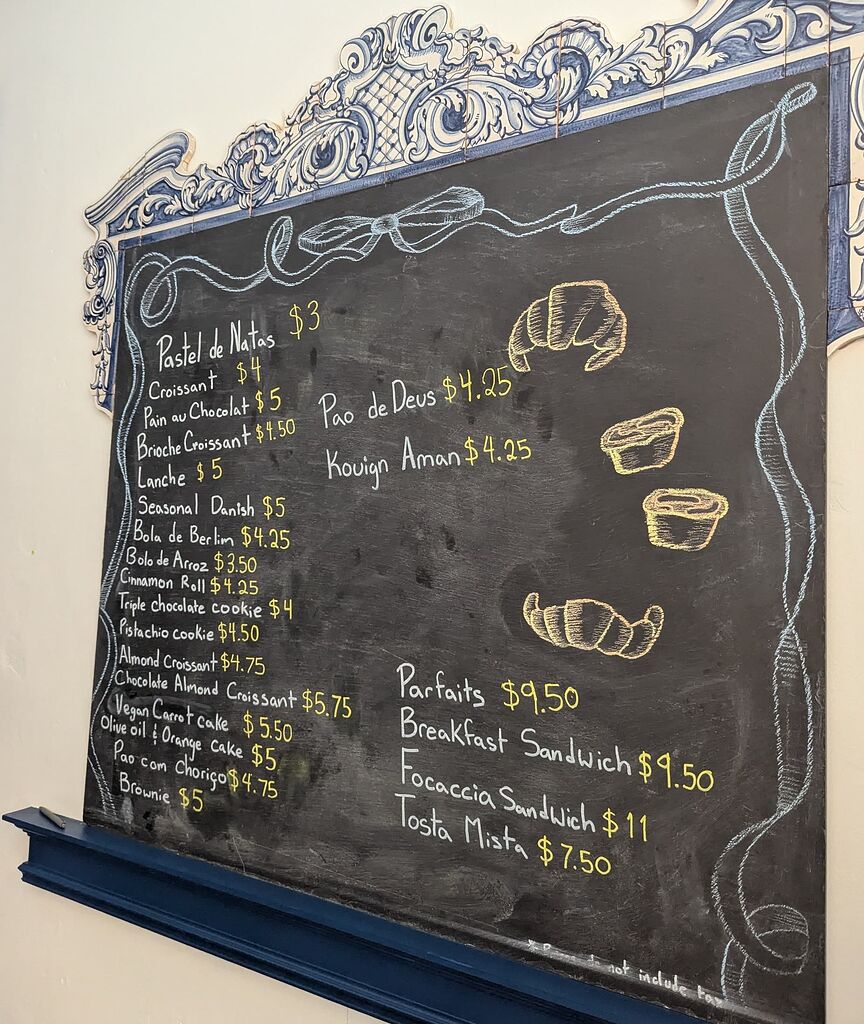 Pastel de Natas $3
Croissant $4
Pain au Chocolat $5
Brioche Croissant $4.50
Lanche $5
Seasonal Danish $5
Bola de Berlim $4.25
Bolo de Arroz $3.50
Cinnamon Roll $4.25
Triple chocolate cookie $4
Pistachio cookie $4.50
Almond Croissant $4.75
Chocolate Almond Croissant $5.75
Vegan Carrot cake $5.50
Olive oil & Orange cake $5
Pao com Choriço $4.75
Brownie $5
Pao de Deus $4.25
Kouign Aman $4.25
Parfaits $9.50
Breakfast Sandwich $9.50
Focaccia Sandwich $11
Tosta Mista $7.50
do not include tax